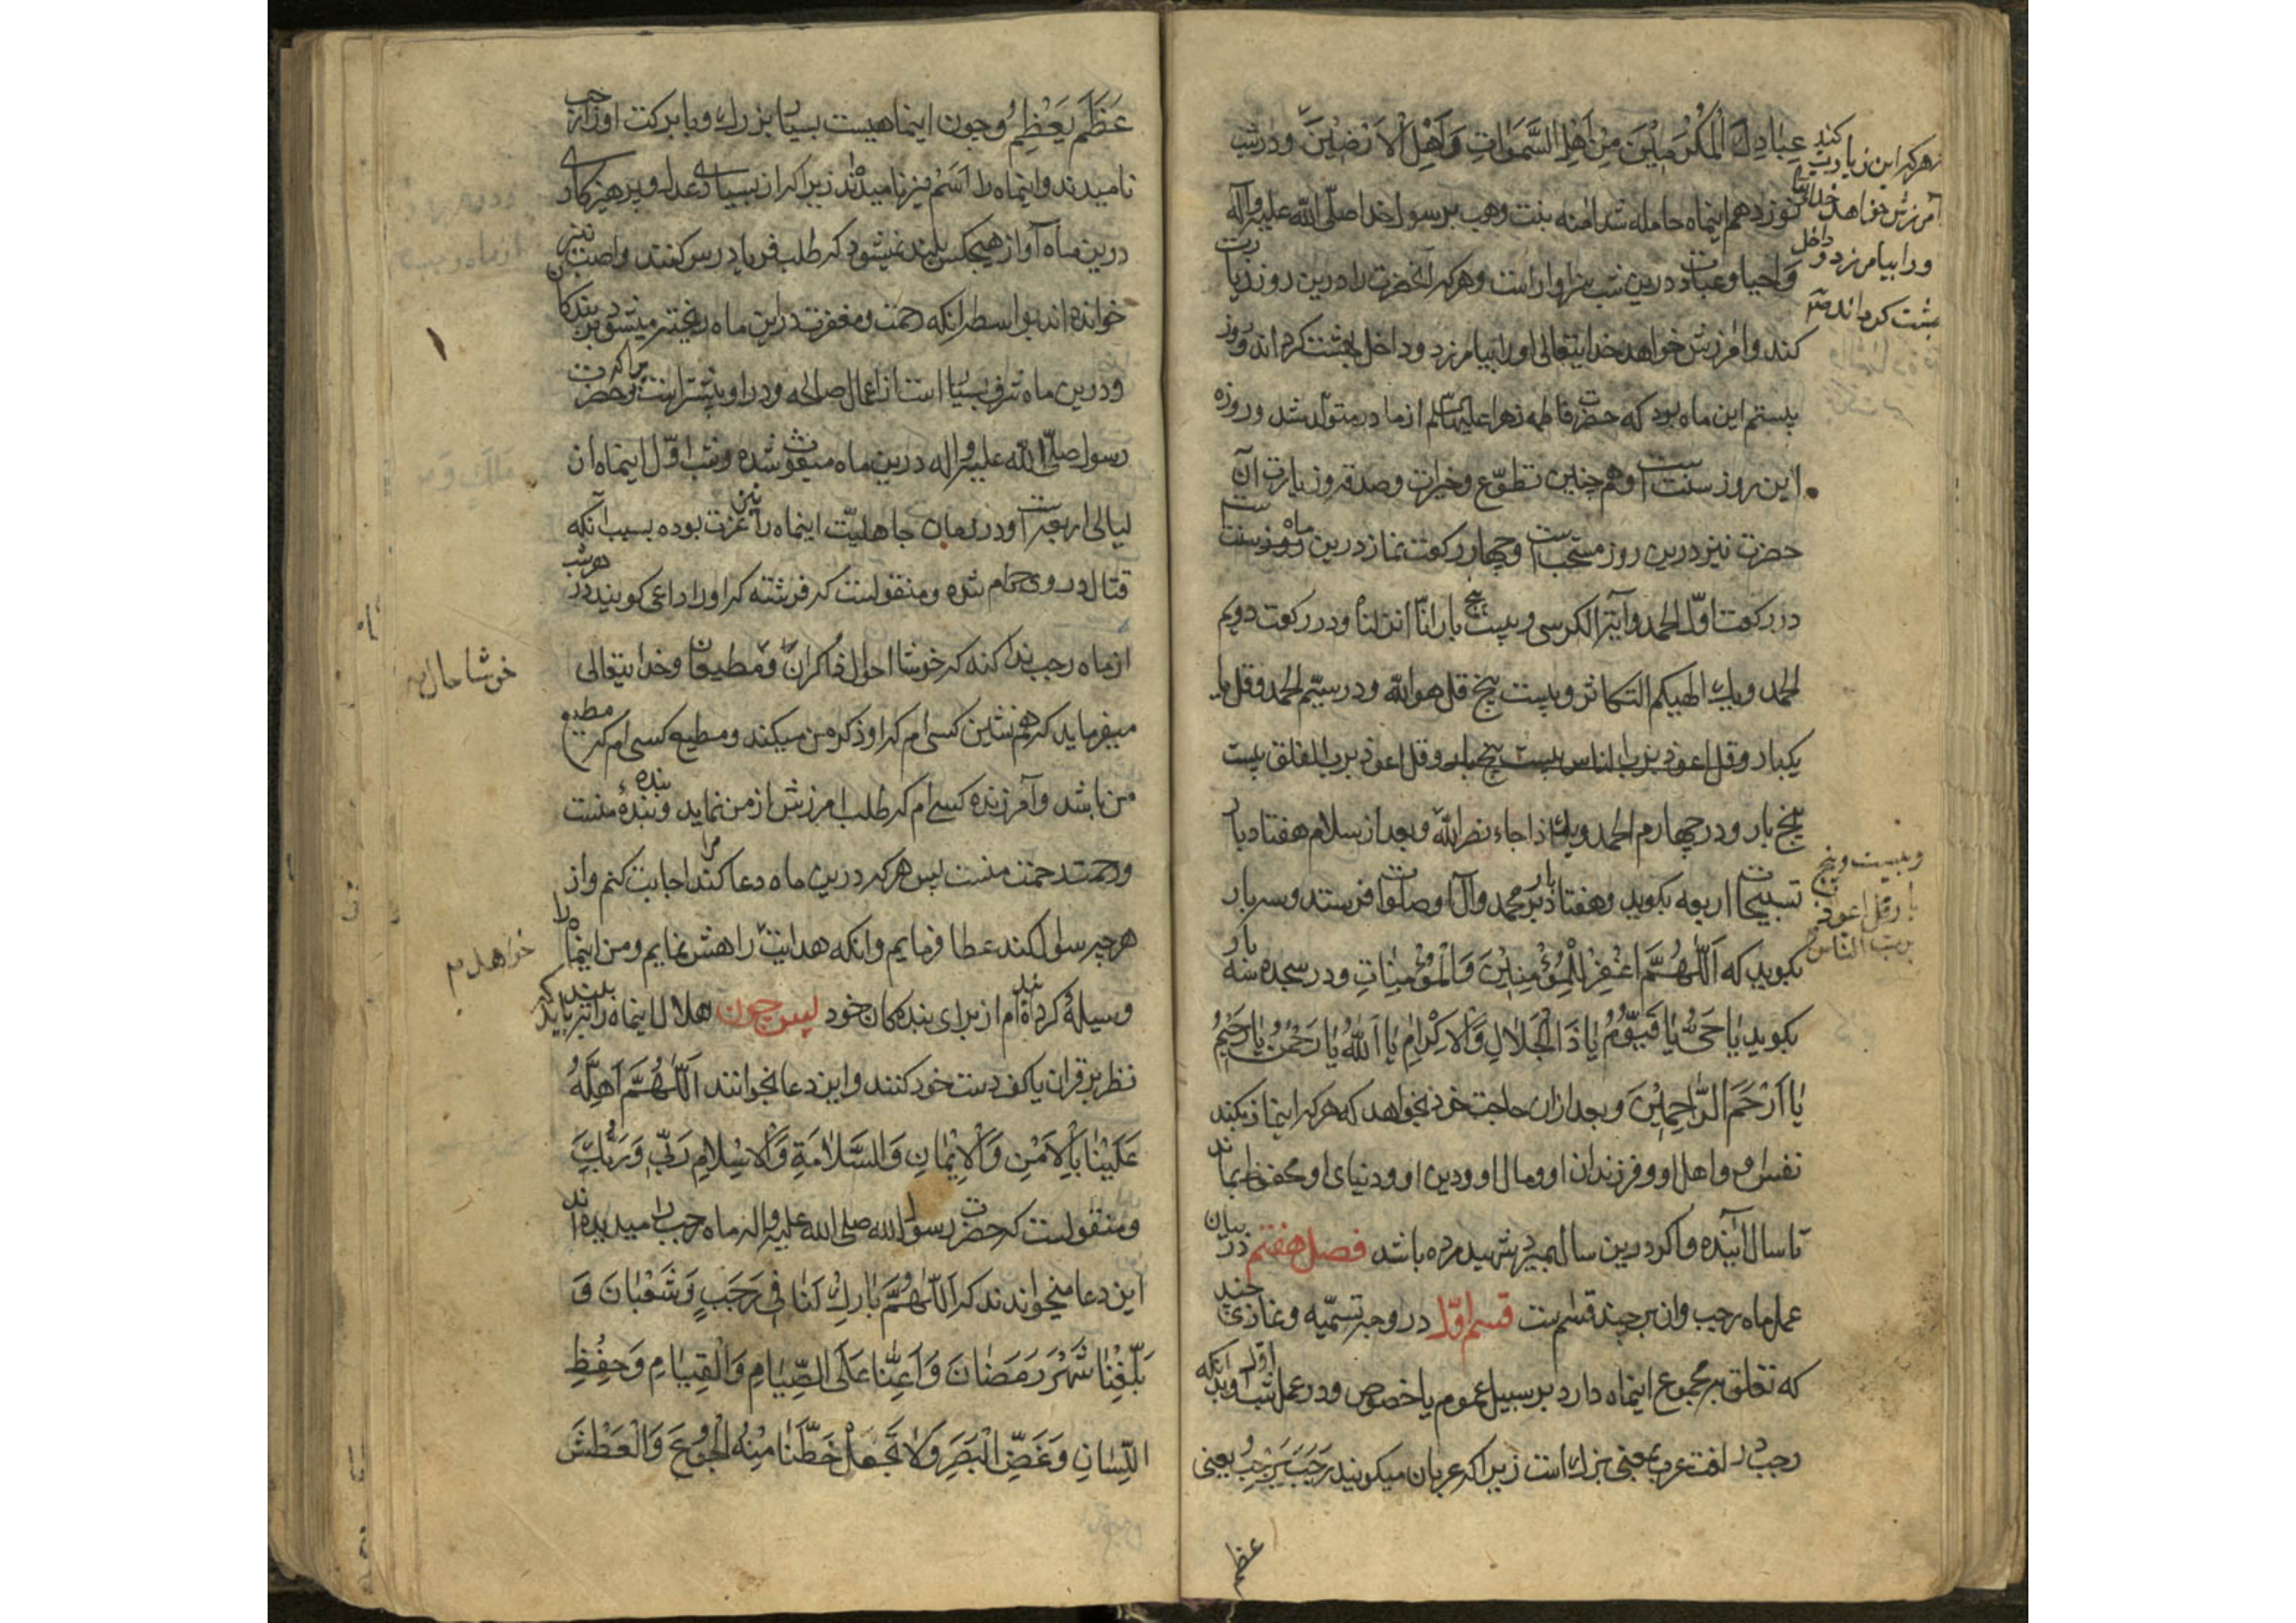 عِبَادِكَ الْمُكْرَمِيْنَ مِنْ اَهْلِ السَّمَوَاتِ وَاَهْلِ الْاَرَضِيْنَ ودر شب
نوزدهم اینماه حامله شد امنه بنت وهب برسول خدا صلّی الله علیه وآله
واحیا وعبادت درین شب سزاوار است وهر که آنحضرت را درین روز زیارت
کند وامرزش خواهد خدایتعالی اورا بیامرزد وداخل بهشت کرداند وروز
بیستم این ماه بود که حضرت فاطمه زهرا علیها السلم از مادر متولد شد وروزه
این روز سنت است وهم چنین تطوّع وخیرات وصدقه وزیارت آن
حضرت نیز درین روز مستحب است وچهار رکعت نماز درین ماه سنت
در رکعت اوّل الحمد وآیة الکرسی وبیست پنج بار انّا انزلناه ودر رکعت دویم
الحمد ویك الهیکم التکاثر وبیست پنج قل هو الله ودر سیّم الحمد وقل یا
یکبار وقل اعوذ برب الناس بیست پنج بار وقل اعوذ برب الفلق بیست
پنج بار ودر چهارم الحمد ویك اذا جاء نصر الله وبعد از سلام هفتاد بار
تسبیحات اربعه بکوید وهفتاد بار بر محمد وآل او صلوات فرستد وسه بار
بکوید که اَللّٰهُمَّ اغْفِرْ لِلْمُؤْمِنِيْنَ وَالْمُؤْمِنَاتِ ودر سجده سه بار
بکوید يَا حَىُّ يَا قَيُّوْمُ يَا ذَا الْجَلَالِ وَالْاِكْرَامِ يَا اَللّٰهُ يَا رَحْمٰنُ يَا رَحِيْمُ
يَا اَرْحَمَ الرَّاحِمِيْنَ وبعد ازان حاجت خود بخواهد که هر که اینماز بکند
نفس او واهل او وفرزندان او ومال او ودین او ودنیای او محفوظ بماند
تا سال آینده واکر درین سال بمیرد شهید مرده باشد فصل هفتم در بیان
عمل ماه رجب وان بر چند قسم ست قسم اوّل در وجه تسمیه ونمازی چند
که تعلق بمجموع اینماه دارد بر سبیل عموم یا خصوص ودر عمل شب اول وبدانکه
رجب در لغت عرب بمعنی بزرك است زیرا که عربان میکویند رَجَبَ يَرْجِبُ یعنی
عظم
هر که این زیارت کند
آمرزش خواهد خدای
ورا بیامرزد وداخل
بهشت کرداند
وبیست وپنج
بار قل اعوذ
برب الناس
عَظَّمَ يُعَظِّمُ وچون اینماهیست بسیار بزرك وبا برکت اورا رجب
نامیدند واینماه را اَصَمّ نیز نامیده‌اند زیرا که از بسیاری عدل وپرهیزکاری
درین ماه آواز هیچکس بلند نمیشود که طلب فریادرس کنند واصب نیز
خوانده اند بواسطه انکه رحمت ومغفرت درین ماه ریخته میشود بر بندکان
ودرین ماه شرف بسیار است از اعمال صالحه ودر او بیشتر است وحضرت
رسول صلّی الله علیه واله درین ماه مبعوث شده وشب اوّل اینماه از
لیالی اربعه است ودر زمان جاهلیّت اینماه را نیز عزت بوده بسبب آنکه
قتال در وی حرام شده ومنقولست که فرشته که اورا داعی کویند در هر شب
از ماه رجب ندا کند که خوشا احوال ذاکران ومطیعان وخدایتعالی
میفرماید که همنشین کسی ام که او ذکر من میکند ومطیع کسی ام که مطیع
من باشد وآمرزنده کسی ام که طلب امرزش از من نماید وبنده بنده منست
ورحمت رحمت منست پس هر که درین ماه دعا کند مرا اجابت کنم واز
هر چه سوال کند عطا فرمایم وانکه هدایت راهش نمایم ومن اینماه را
وسیله کردانیده‌ام از برای بندکان خود پس چون هلال اینماه را ببیند باید که
نظر بر قران یا کف دست خود کنند واین دعا بخوانند اَللّٰهُمَّ اَهِلَّهُ
عَلَيْنَا بِالْاَمْنِ وَالْاِيْمَانِ وَالسَّلَامَةِ وَالْاِسْلَامِ رَبِّيْ وَرَبُّكَ
ومنقولست که حضرت رسول الله صلی الله علیه واله ماه رجب را میدیده‌اند
این دعا میخواندند که اَللّٰهُمَّ بَارِكْ لَنَا فِى رَجَبٍ وَشَعْبَانَ وَ
بَلِّغْنَا شَهْرَ رَمَضَانَ وَاَعِنَّا عَلَى الصِّيَامِ وَالْقِيَامِ وَحِفْظِ
اللِّسَانِ وَغَضِّ الْبَصَرِ وَلَا تَجْعَلْ حَظَّنَا مِنْهُ الْجُوْعَ وَالْعَطَشَ
خوشا حال
خواهد